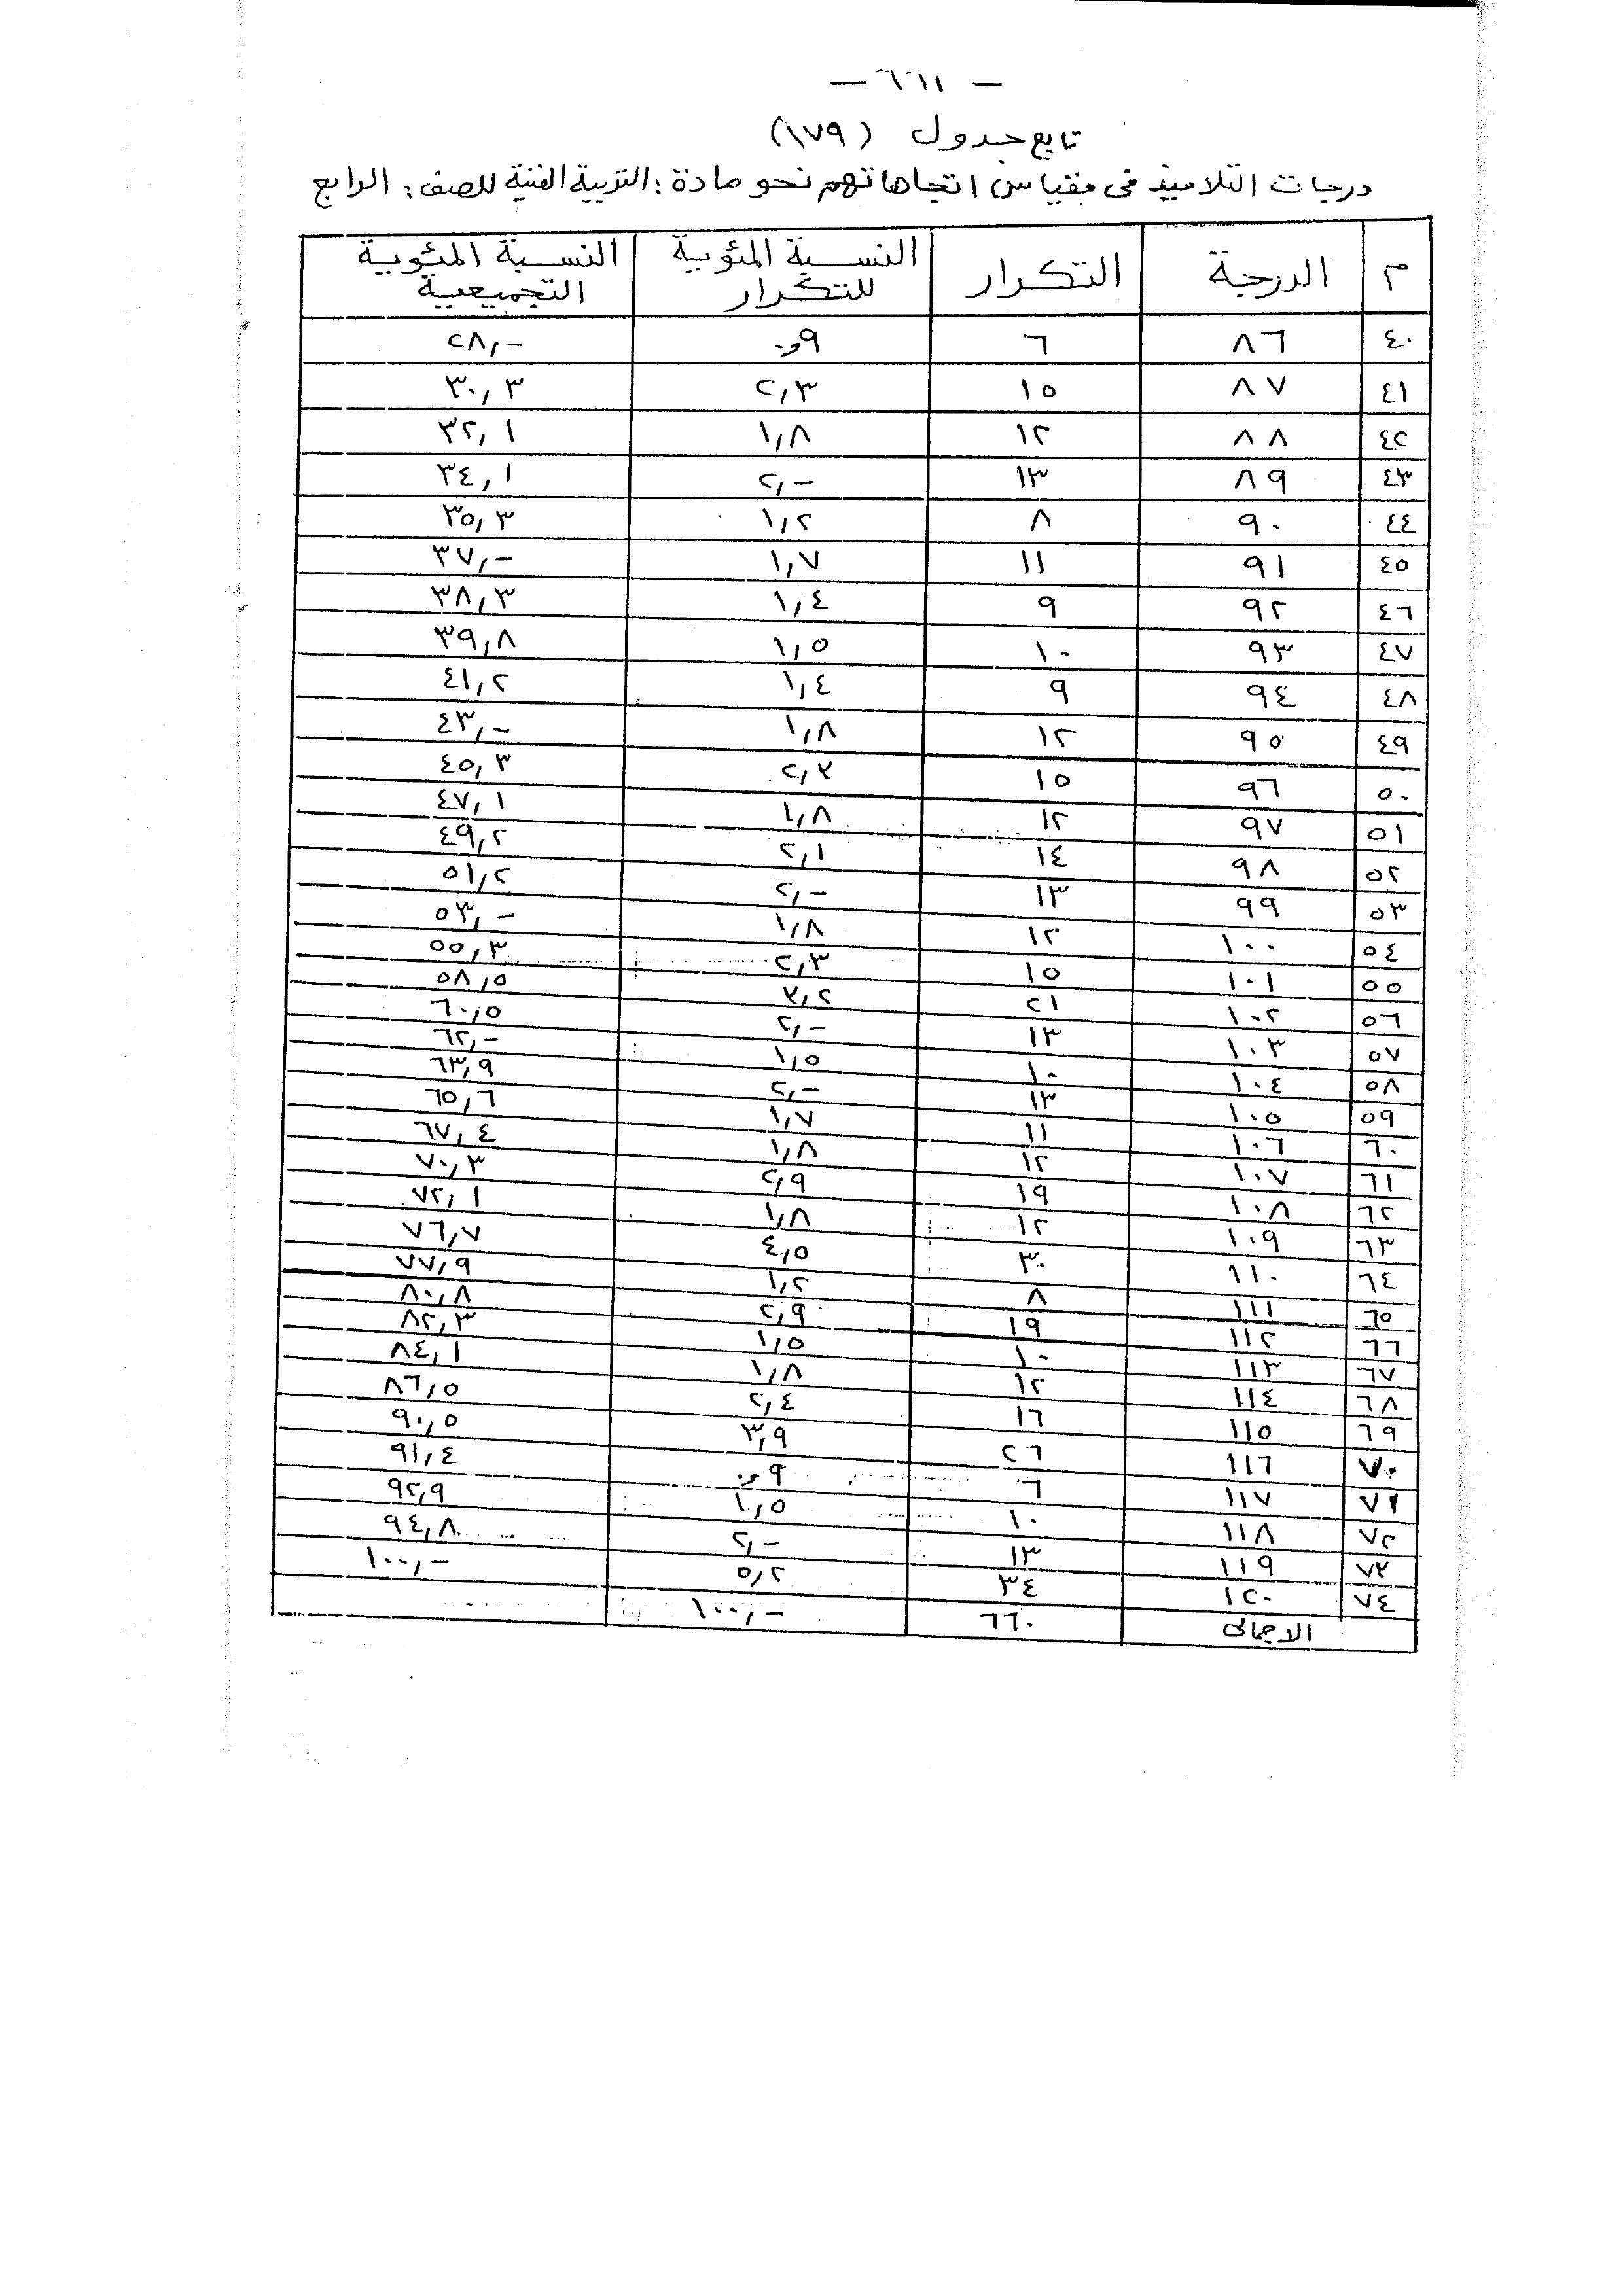 — ٦٦١ —
تابع جدول (١٧٩)
درجات التلاميذ فى مقياس اتجاهاتهم نحو مادة : التربية الفنية للصف : الرابع
م الدرجة التكرار النسبة المئوية للتكرار النسبة المئوية التجميعية
٤٠ ٨٦ ٦ ٠,٩ ٢٨,-
٤١ ٨٧ ١٥ ٢,٣ ٣٠,٣
٤٢ ٨٨ ١٢ ١,٨ ٣٢,١
٤٣ ٨٩ ١٣ ٢,- ٣٤,١
٤٤ ٩٠ ٨ ١,٢ ٣٥,٣
٤٥ ٩١ ١١ ١,٧ ٣٧,-
٤٦ ٩٢ ٩ ١,٤ ٣٨,٣
٤٧ ٩٣ ١٠ ١,٥ ٣٩,٨
٤٨ ٩٤ ٩ ١,٤ ٤١,٢
٤٩ ٩٥ ١٢ ١,٨ ٤٣,-
٥٠ ٩٦ ١٥ ٢,٣ ٤٥,٣
٥١ ٩٧ ١٢ ١,٨ ٤٧,١
٥٢ ٩٨ ١٤ ٢,١ ٤٩,٢
٥٣ ٩٩ ١٣ ٢,- ٥١,٢
٥٤ ١٠٠ ١٢ ١,٨ ٥٣,-
٥٥ ١٠١ ١٥ ٢,٣ ٥٥,٣
٥٦ ١٠٢ ٢١ ٣,٢ ٥٨,٥
٥٧ ١٠٣ ١٣ ٢,- ٦٠,٥
٥٨ ١٠٤ ١٠ ١,٥ ٦٢,-
٥٩ ١٠٥ ١٣ ٢,- ٦٣,٩
٦٠ ١٠٦ ١١ ١,٧ ٦٥,٦
٦١ ١٠٧ ١٢ ١,٨ ٦٧,٤
٦٢ ١٠٨ ١٩ ٢,٩ ٧٠,٣
٦٣ ١٠٩ ١٢ ١,٨ ٧٢,١
٦٤ ١١٠ ٣٠ ٤,٥ ٧٦,٧
٦٥ ١١١ ٨ ١,٢ ٧٧,٩
٦٦ ١١٢ ١٩ ٢,٩ ٨٠,٨
٦٧ ١١٣ ١٠ ١,٥ ٨٢,٣
٦٨ ١١٤ ١٢ ١,٨ ٨٤,١
٦٩ ١١٥ ١٦ ٢,٤ ٨٦,٥
٧٠ ١١٦ ٢٦ ٣,٩ ٩٠,٥
٧١ ١١٧ ٦ ٠,٩ ٩١,٤
٧٢ ١١٨ ١٠ ١,٥ ٩٢,٩
٧٣ ١١٩ ١٣ ٢,- ٩٤,٨
٧٤ ١٢٠ ٣٤ ٥,٢ ١٠٠,-
الاجمالى ٦٦٠ ١٠٠,-